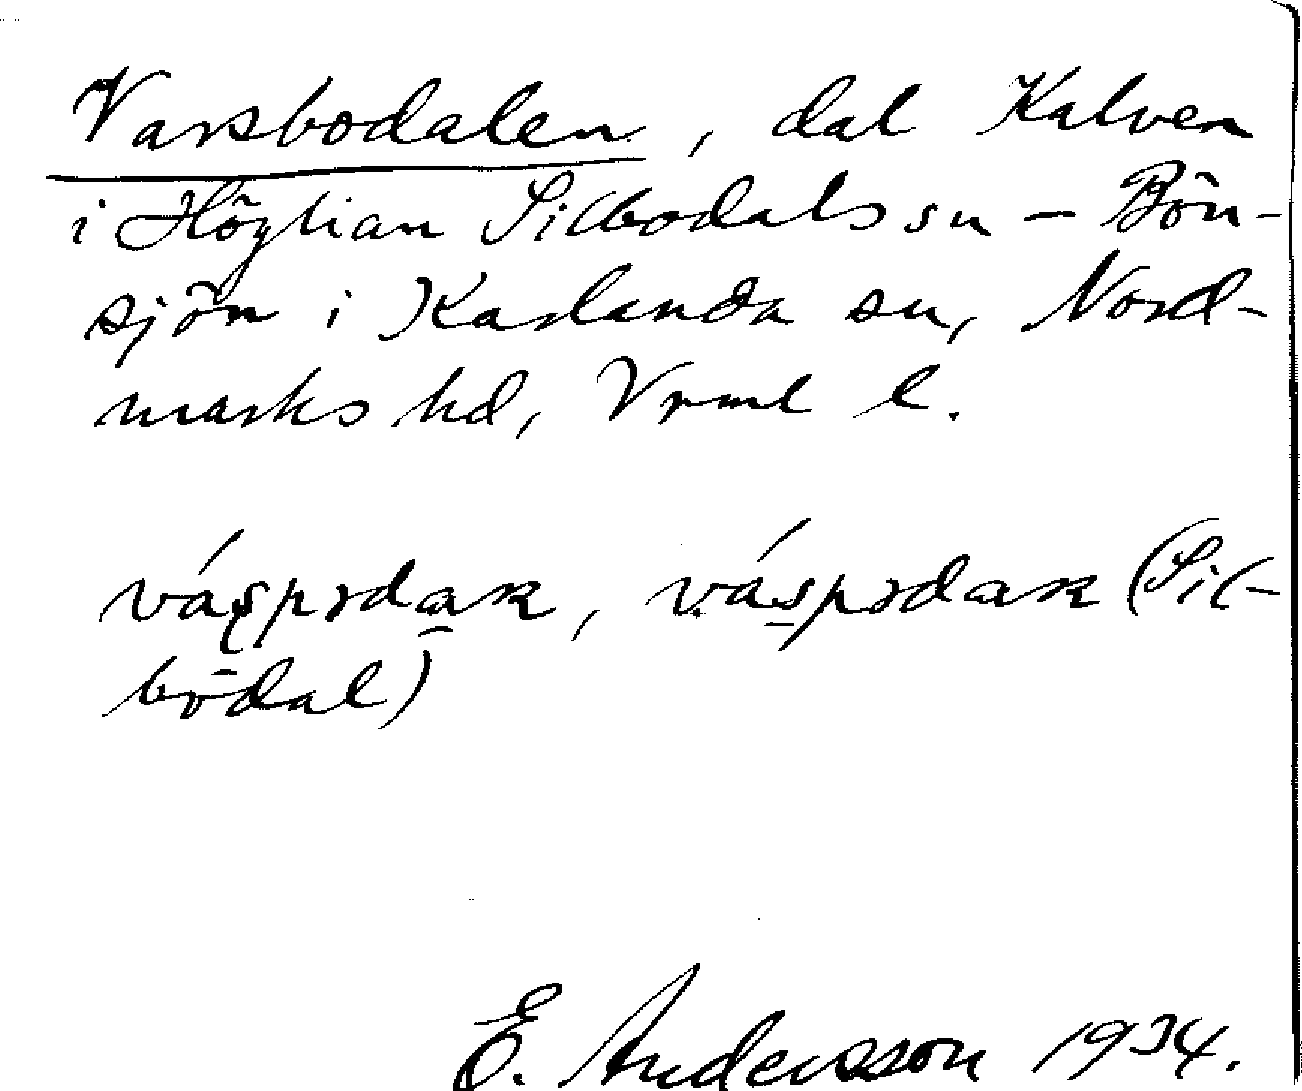 Varsbodalen, dal Kalven
i Höglian Silbodals sn – Bön-
sjön i Karlanda sn, Nord-
marks hd, Vrml l.
(Sil-
bodal)
E. Andersson 1934.